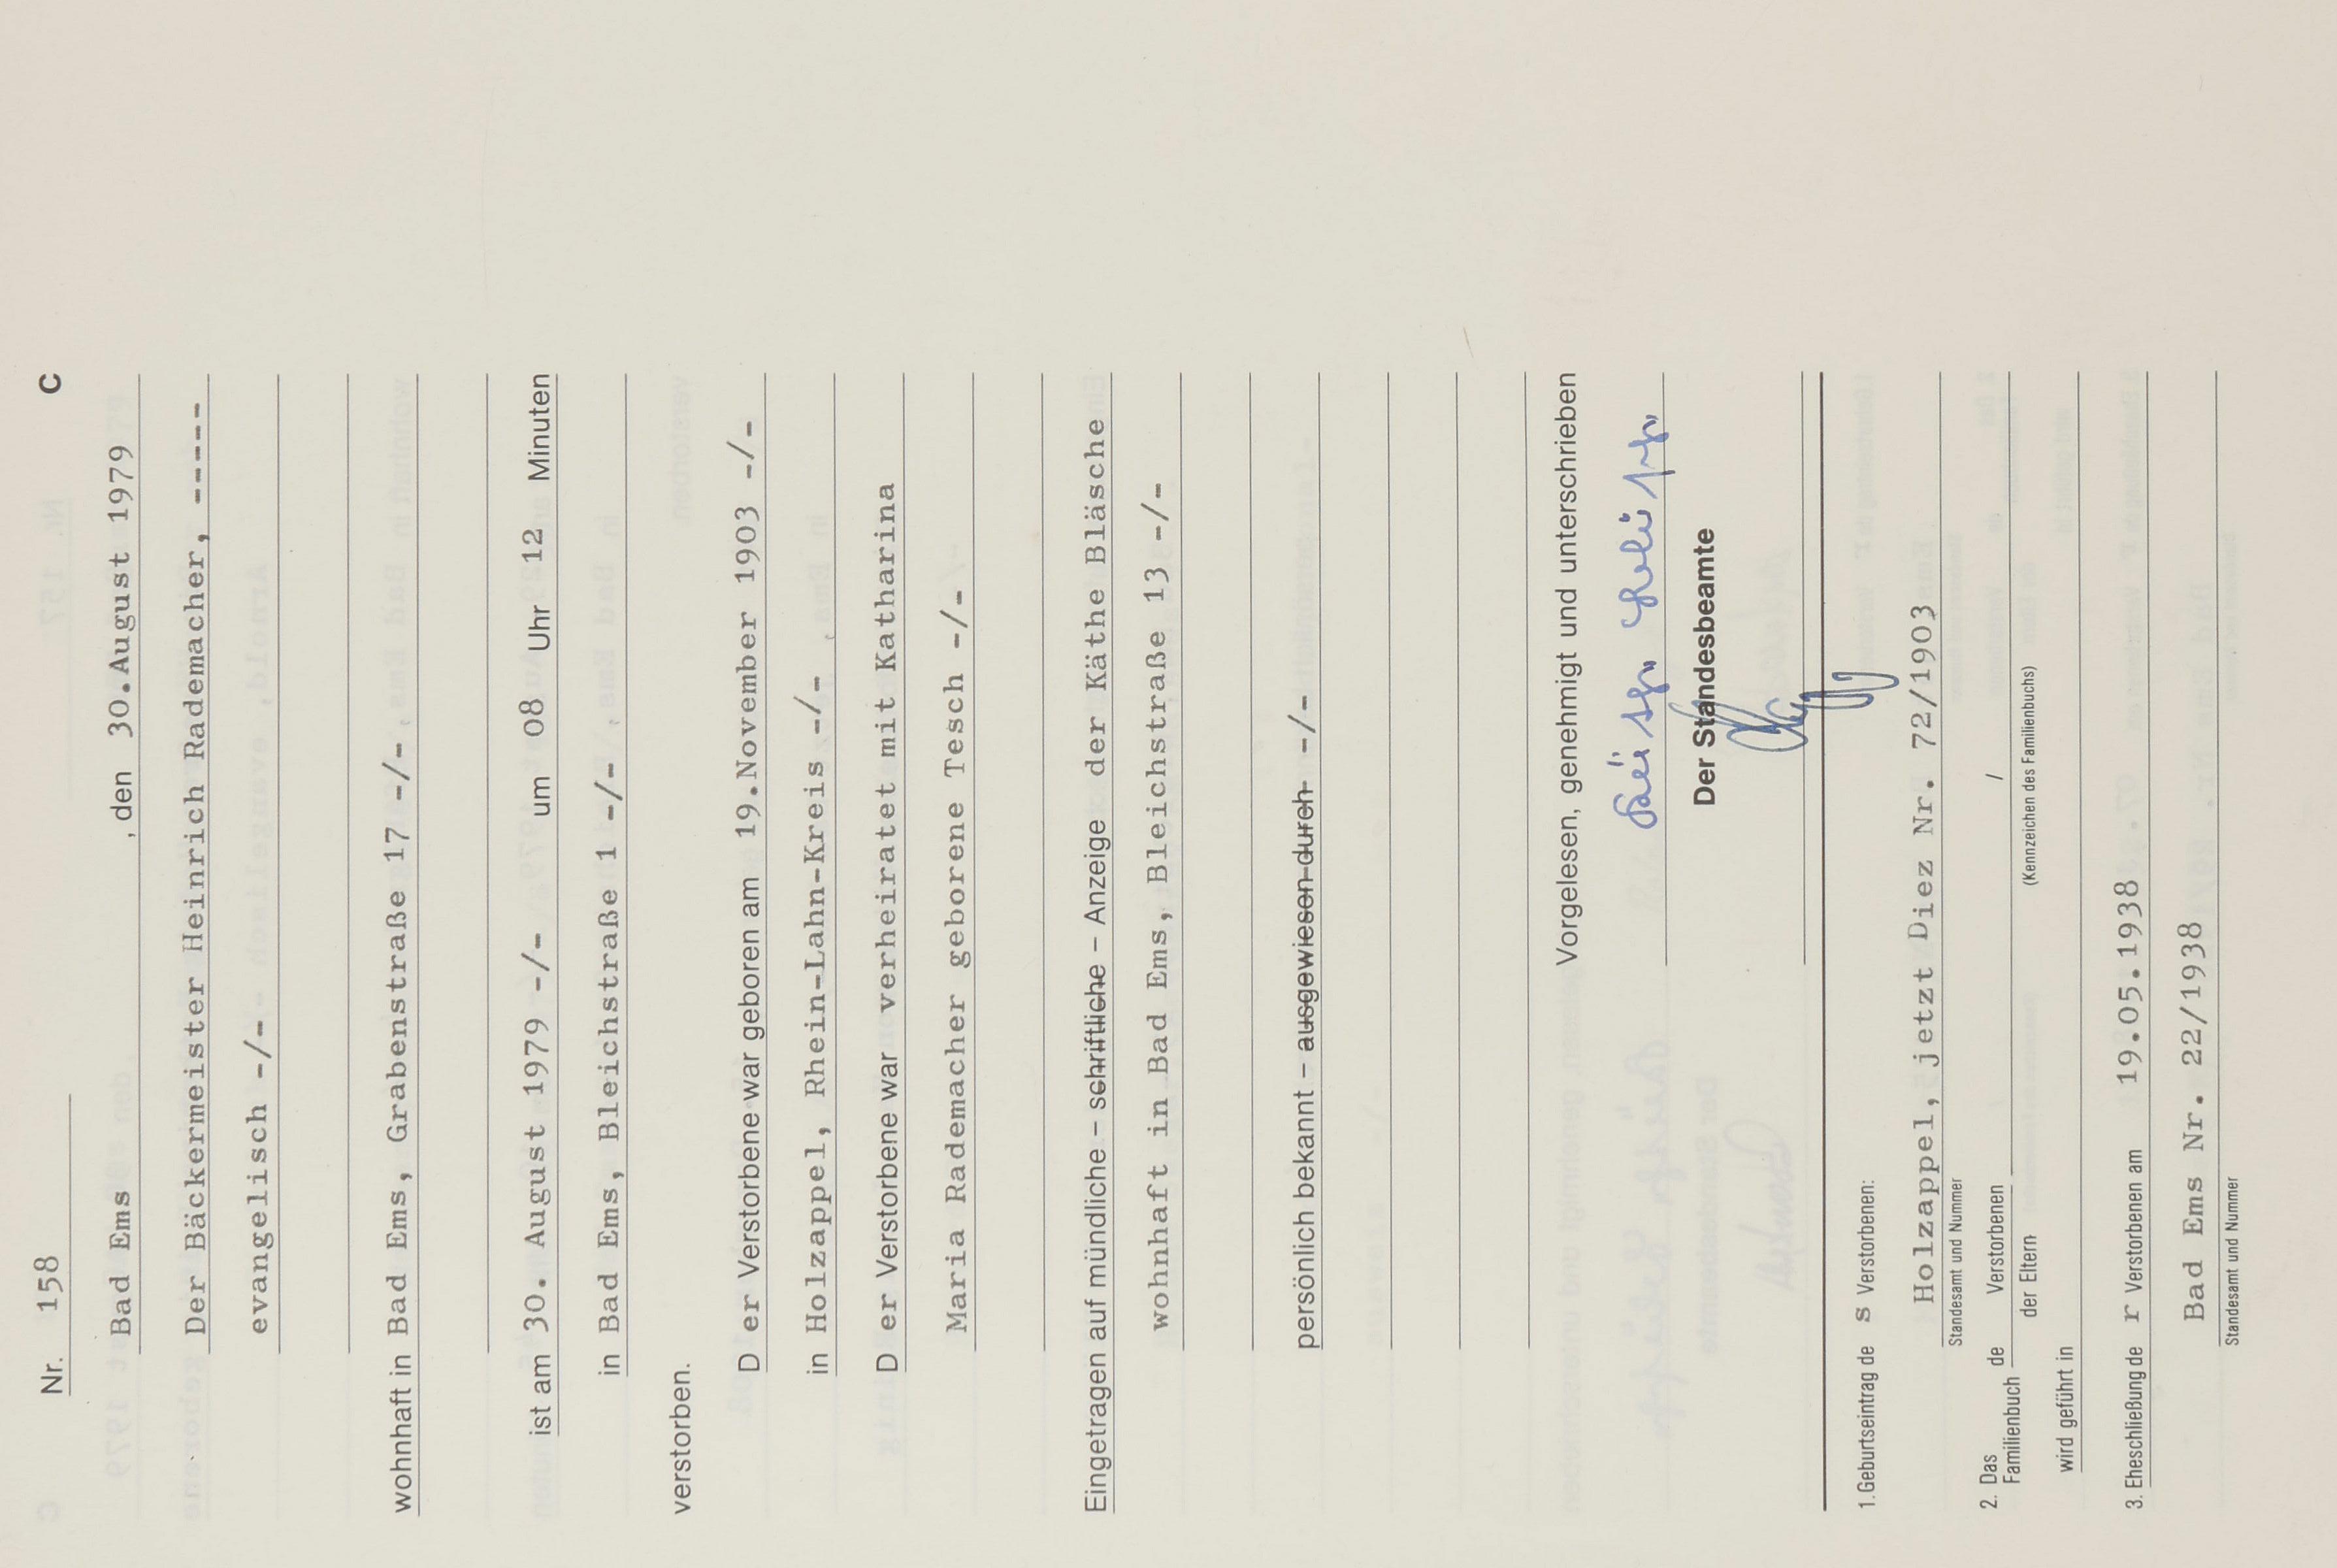 Nr. 158 C
Bad Ems , den 30.August 1979
Der Bäckermeister Heinrich Rademacher, -----
evangelisch -/-
wohnhaft in Bad Ems, Grabenstraße 17 -/-
ist am 30. August 1979 -/- um 08 Uhr 12 Minuten
in Bad Ems, Bleichstraße 1 -/-
verstorben.
D er Verstorbene war geboren am 19.November 1903 -/-
in Holzappel, Rhein-Lahn-Kreis -/-
D er Verstorbene war verheiratet mit Katharina
Maria Rademacher geborene Tesch -/-
Eingetragen auf mündliche – schriftliche – Anzeige der Käthe Bläsche
wohnhaft in Bad Ems, Bleichstraße 13 -/-
persönlich bekannt – ausgewiesen durch -/-
Vorgelesen, genehmigt und unterschrieben
Der Standesbeamte
1. Geburtseintrag de s Verstorbenen:
Holzappel, jetzt Diez Nr. 72/1903
Standesamt und Nummer
2. Das Familienbuch de Verstorbenen /
der Eltern (Kennzeichen des Familienbuchs)
wird geführt in
3. Eheschließung de r Verstorbenen am 19.05.1938
Bad Ems Nr. 22/1938
Standesamt und Nummer